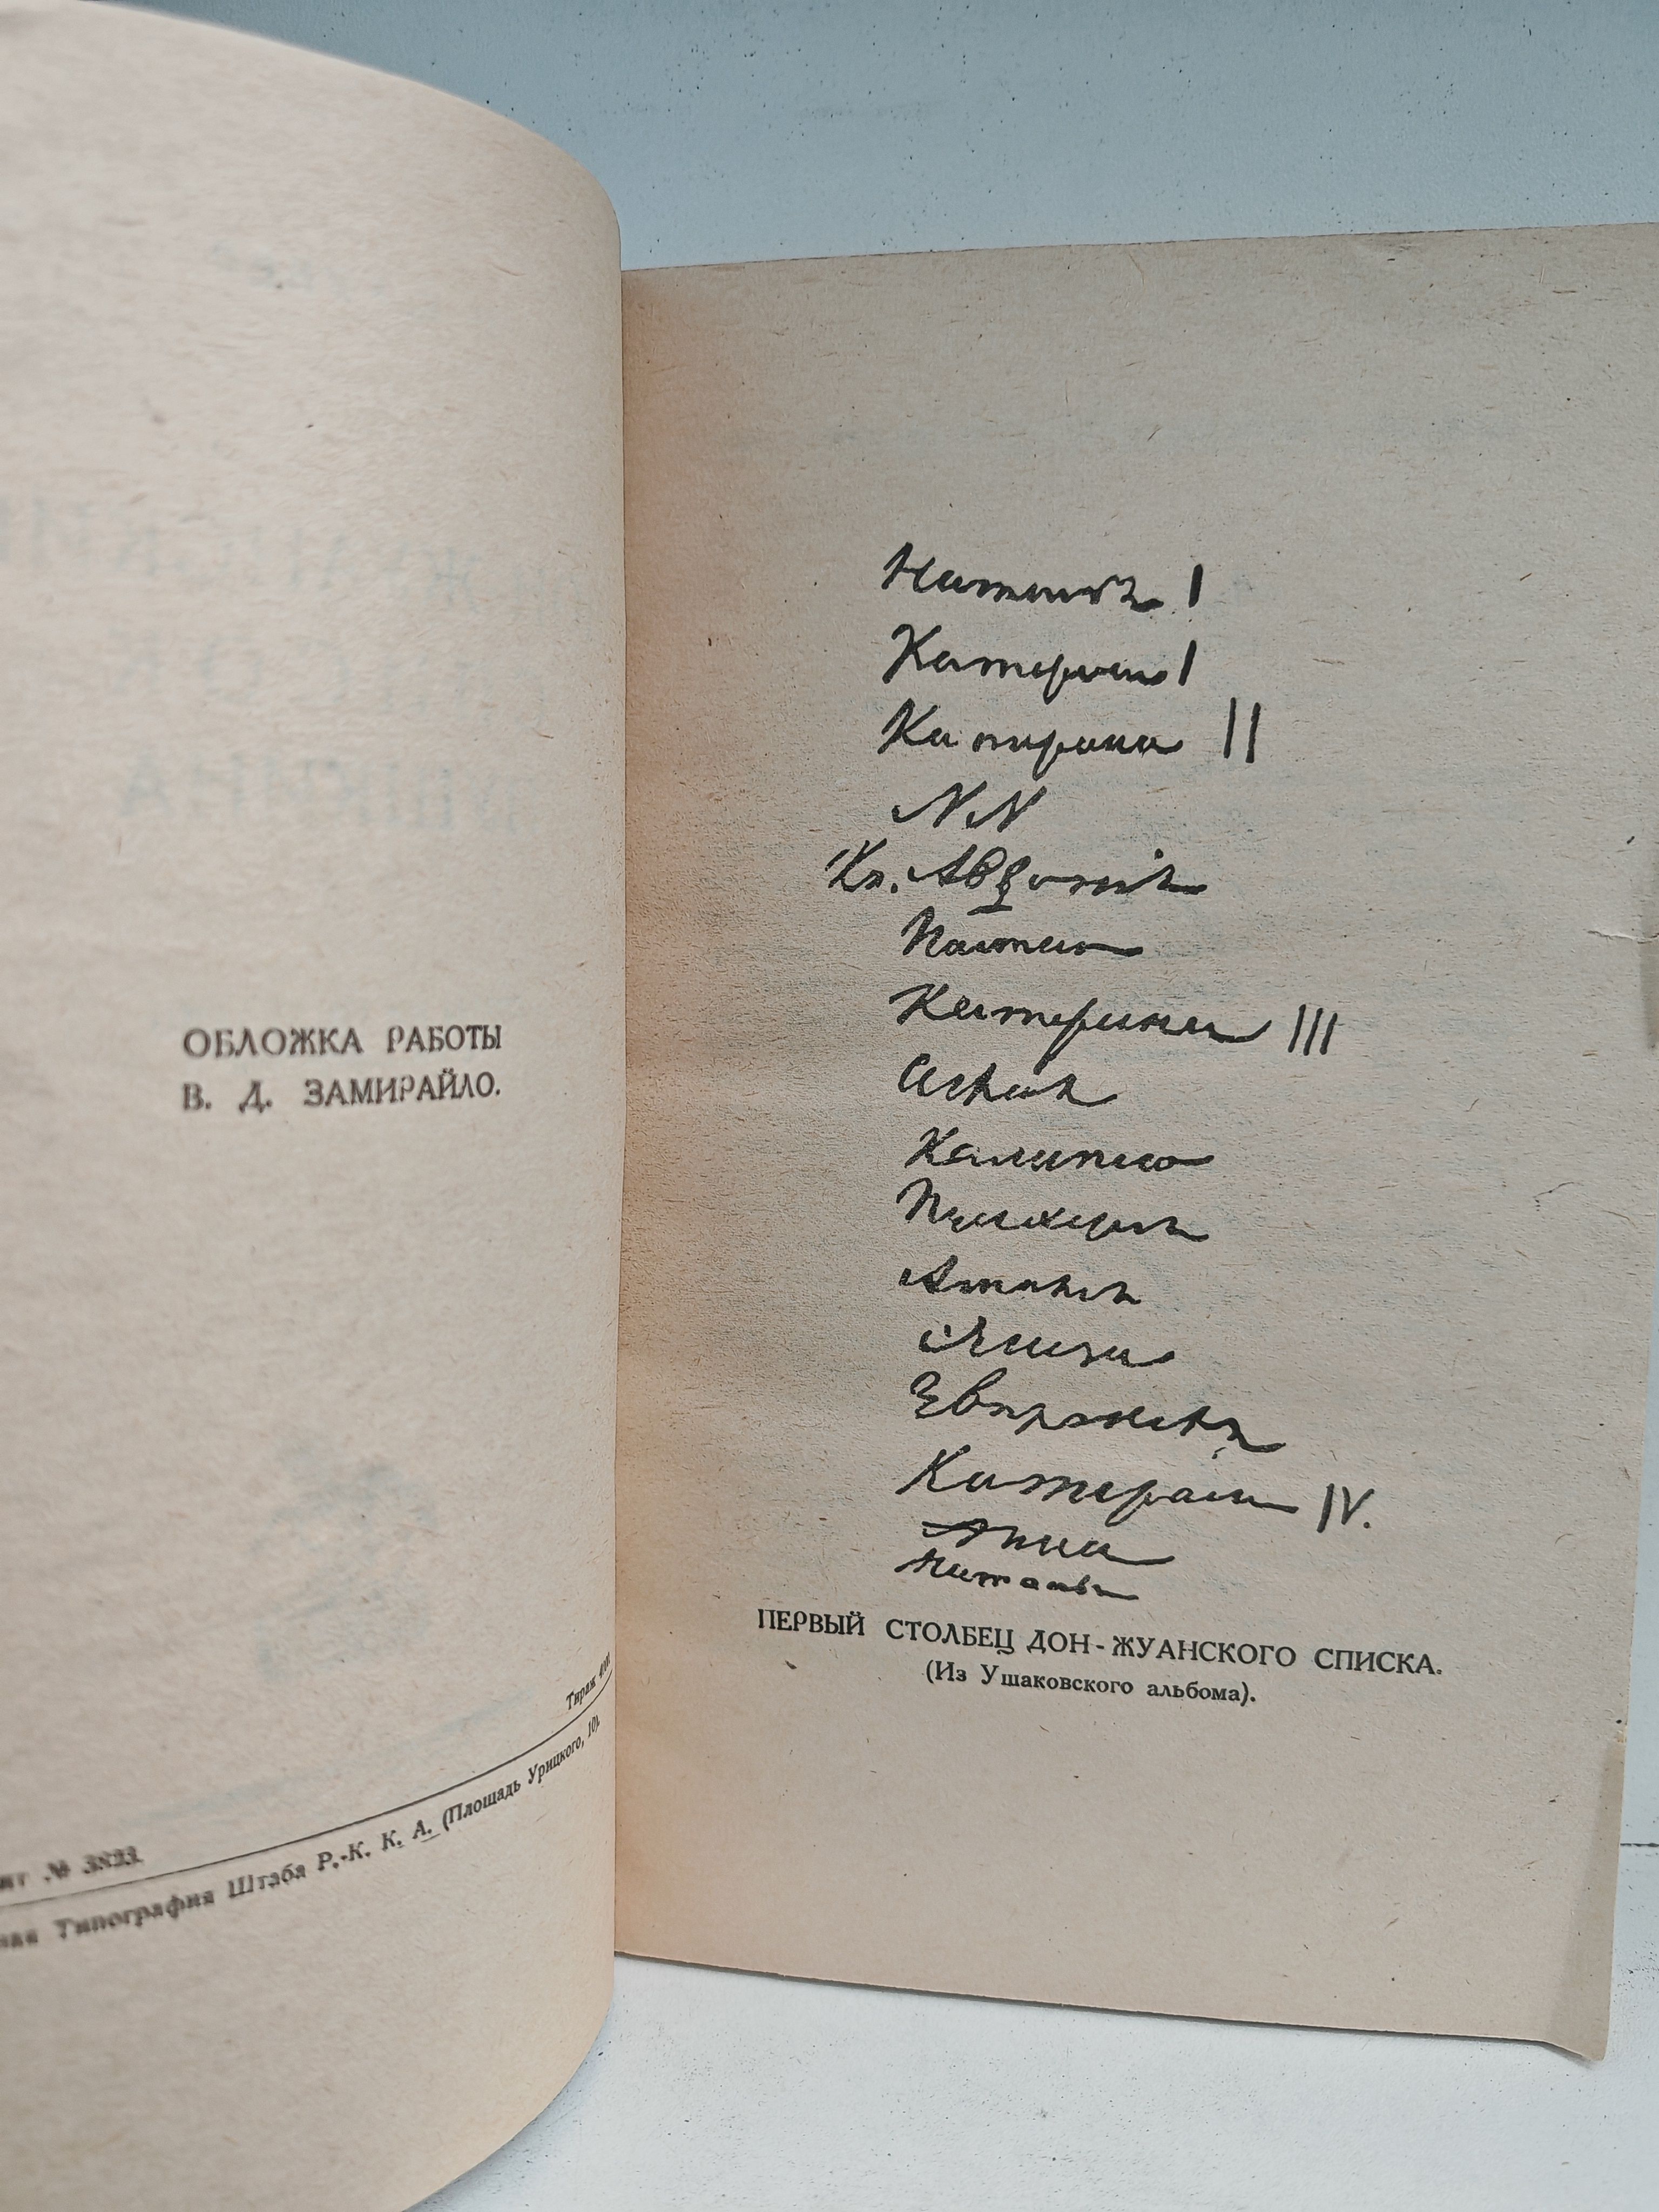 ОБЛОЖКА РАБОТЫ
В. Д. ЗАМИРАЙЛО.
Тираж
№ 3823.
Типография Штаба Р.-К. К. А. (Площадь Урицкого, 10).
Наталья I
Катерина I
Катерина II
NN
Кн. Авдотія
Настасья
Катерина III
Аглая
Калипсо
Пулхерія
Амалія
Элиза
Евпраксея
Катерина IV.
Анна
Наталья
ПЕРВЫЙ СТОЛБЕЦ ДОН-ЖУАНСКОГО СПИСКА.
(Из Ушаковского альбома).